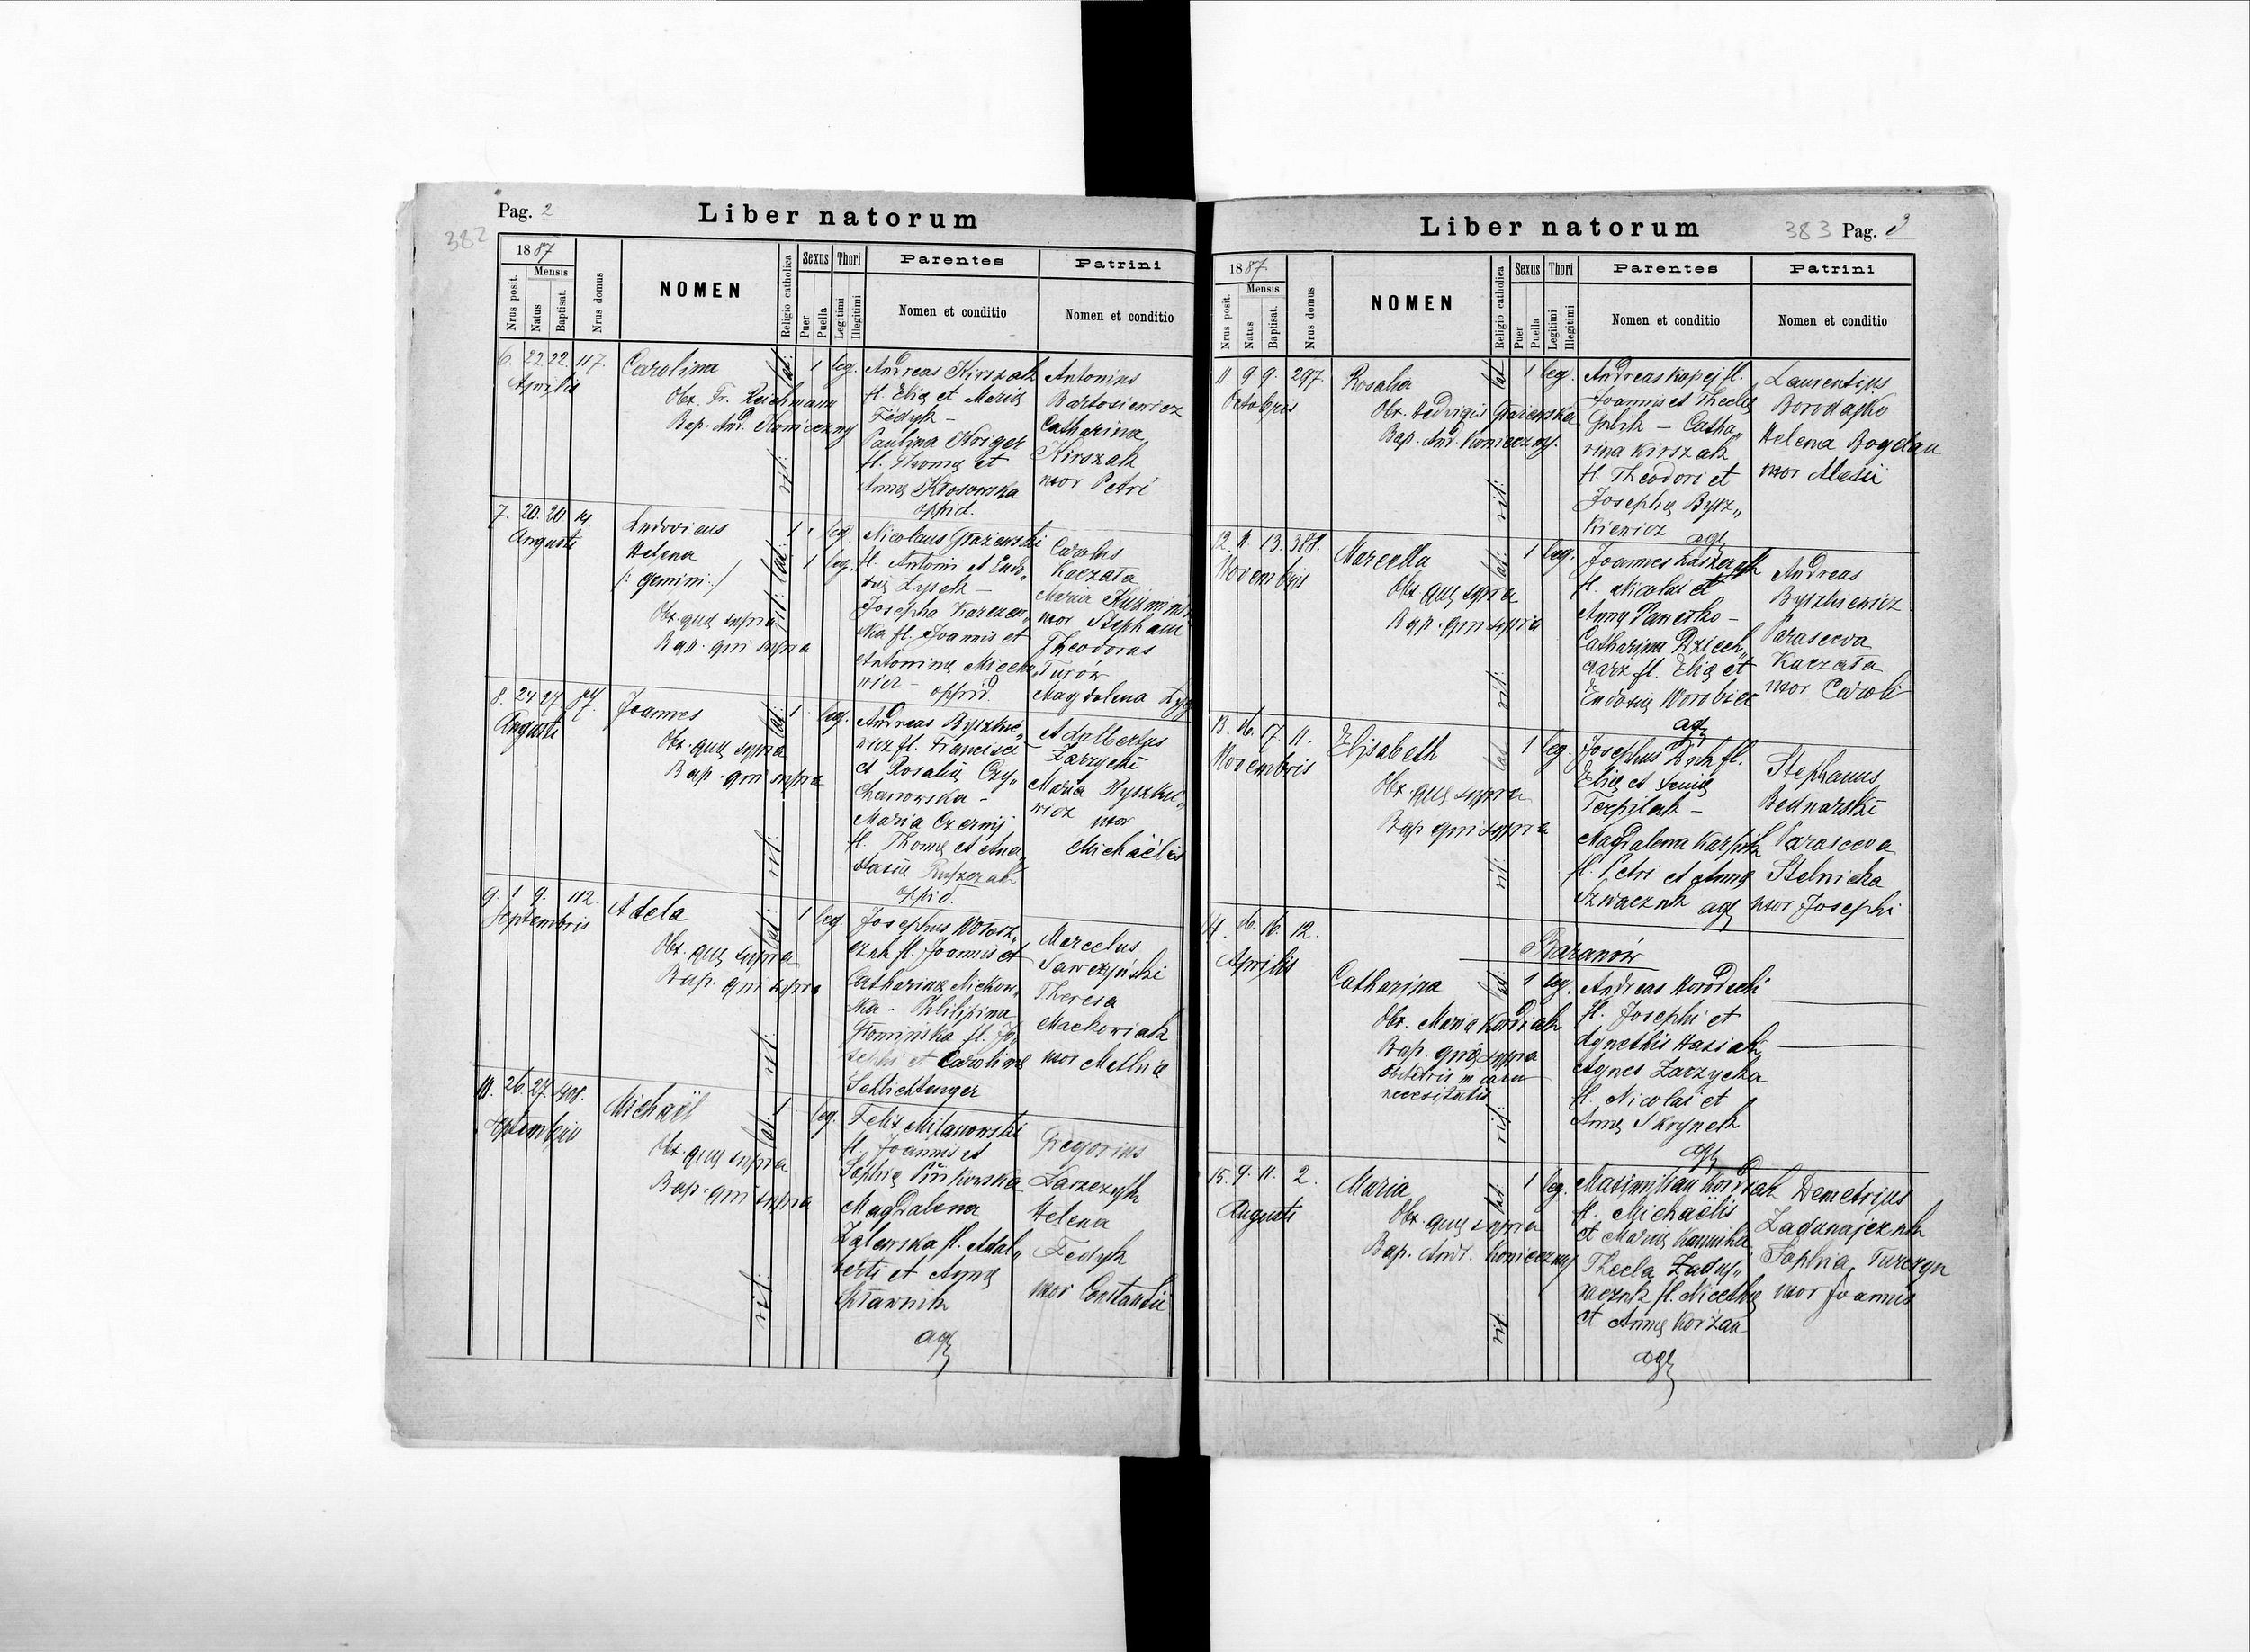 Pag. 2
382
Liber natorum
1887
Nrus posit.
Mensis
Natus
Baptisat.
Nrus domus
NOMEN
Religio catholica
Sexus
Puer
Puella
Thori
Legitimi
Illegitimi
Parentes
Nomen et conditio
Patrini
Nomen et conditio
6. 22 22. 117.
Aprilis
Carolina
Obx. Fr. Reichmann
Bap. And. Konieczny
rit: lat:
1 leg.
Andreas Kirszak
fl. Elię et Marię
Fedyk –
Paulina Kriger
fl. Thomę et
Annę Kłosowska
oppid.
Antonius
Bartosiewicz
Catharina
Kirszak
uxor Petri
7. 20. 20
Augusti
Ludovicus
Helena
/: gemini :/
Obx. quę supra
Bap. qui supra
rit: lat:
1 leg.
1 leg.
Nicolaus Grażewski
fl. Antonii et Eudo„
Josepha Karczew„
ska fl. Joannis et
Antoninę
oppid.
Carolus
Kaczała
Maria
uxor Stephani
Theodorus
Turów
Magdalena
8. 24 27
Augusti
Joannes
Obx. quę supra
Bap. qui supra
rit: lat:
1 leg.
Andreas Byszkie„
wicz fl. Francisci
et Rosalię Czy„
chanowska –
Maria Czernij
fl. Thomę et Ana„
oppid.
Adalbertus
Zarzycki
Maria Byszkie„
wicz uxor
Michaëlis
9. 1 9. 112.
Septembris
Adela
Obx. quę supra
Bap. qui supra
rit: lat:
1 leg.
Josephus Wołosz„
czuk fl. Joannis et
Catharinę Mickow„
ska – Philipina
Słomińska fl. Jo„
sephi et Carolinę
Schlichtinger
Marcelus
Sawczyński
Theresa
Maćkowiak
uxor Mathię
10. 26. 27. 408.
Septembris
Michaël
Obx. quę supra
Bap. qui supra
rit: lat:
1 leg.
Felix Milanowski
fl. Joannis et
Sophię
Magdalena
Zalewska fl. Adal„
berti et Annę
Spławnik
agr
Gregorius
Łazczyk
Helena
Fedyk
uxor Constantii
383 Pag. 3
Liber natorum
1887
Nrus posit.
Mensis
Natus
Baptisat.
Nrus domus
NOMEN
Religio catholica
Sexus
Puer
Puella
Thori
Legitimi
Illegitimi
Parentes
Nomen et conditio
Patrini
Nomen et conditio
11. 9 9. 297.
Octobris
Rosalia
Obx. Hedvigis Grażewska
Bap. And. Konieczny.
rit: lat:
1 leg.
Andreas Kopej fl.
Joannis et Theclę
Gubik – Catha„
rina Kirszak
fl. Theodori et
Josephę Bysz„
kiewicz agr
Laurentius
Borodajko
Helena Bogdan
uxor Alexii
12. 11. 13. 388.
Novembris
Marcella
Obx quę supra
Bap. qui supra
rit: lat:
1 leg.
Joannes Łaszczyk
fl. Nicolai et
Annę Pawełko –
Catharina Dziech„
ciarz fl. Elię et
Eudoxię Worobiec
agr
Andreas
Byszkiewicz
Parasceva
Kaczała
uxor Caroli
13. 16. 17. 11.
Novembris
Elisabeth
Obx. quę supra
Bap qui supra
rit: lat
1 leg.
Josephus
fl.
Elię et
Magdalena Karpik
fl. Petri et Annę
Szwaczuk agr
Stephanus
Bednarski
Parasceva
Stelnicka
uxor Josephi
14. 16. 16. 12.
Aprilis
Baranów
Catharina
Obx. Maria Kordiak
Bap. quę supra
obstetris in casu
necessitatis
rit: lat:
1 leg.
Andreas Horodecki
fl. Josephi et
Agnethis Hasiak
Agnes Zarzycka
fl. Nicolai et
Annę Skrypnik
agr
15. 9. 11. 2.
Augusti
Maria
Obx. quę supra
Bap. And. Konieczny
rit: lat:
1 leg.
Maximilian Kordiak
fl. Michaëlis
et Marię Kaminka
Thecla Zadu„
najczuk fl. Nicethę
et Annę Korżan
agr
Demetrius
Zadunajczuk
Sophia Turczyn
uxor Joannis